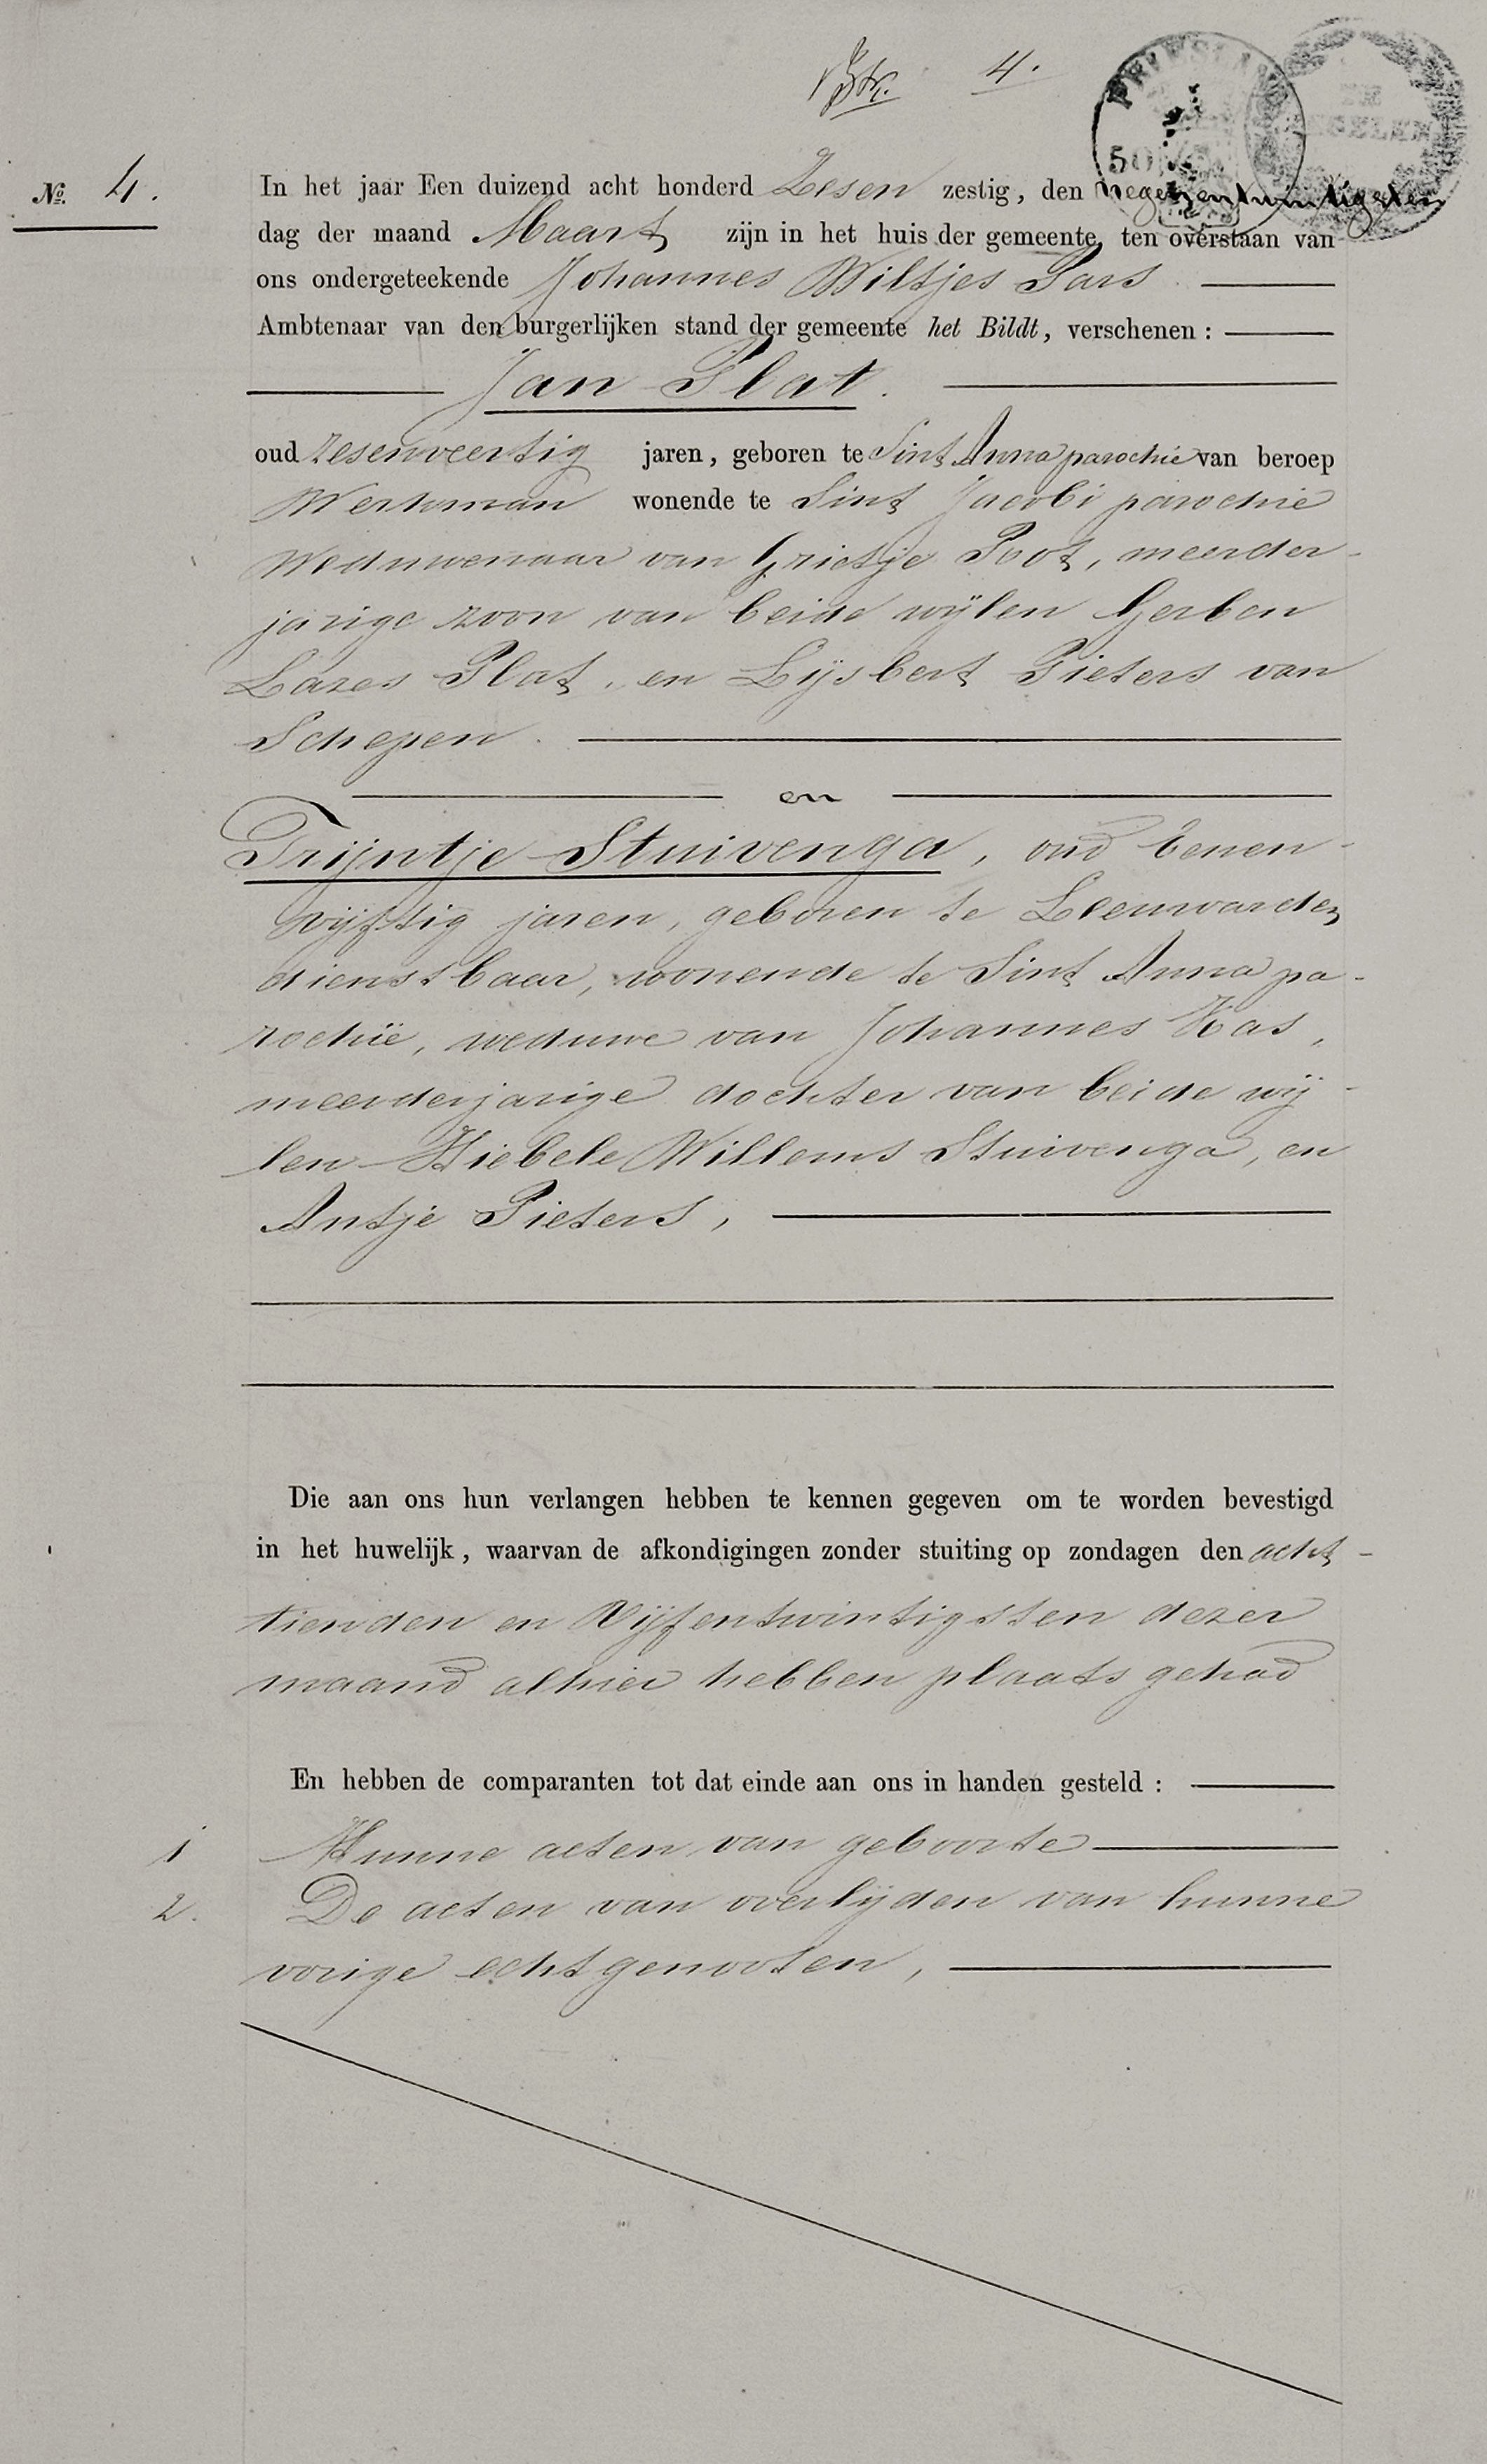 4.
FRIESLAND
50
No. 4.
In het jaar Een duizend acht honderd Zesen zestig, den negenentwintigsten
dag der maand Maart zijn in het huis der gemeente, ten overstaan van
ons ondergeteekende Johannes Wiltjes Sars
Ambtenaar van den burgerlijken stand der gemeente het Bildt, verschenen:
Jan Plat.
oud zesenveertig jaren, geboren te Sint Anna parochie van beroep
Werkman wonende te Sint Jacobi parochie
Weduwenaar van Grietje Poot, meerder-
jarige zoon van beide wijlen Gerben
Lazes Plat, en Lijsbert Pieters van
Schepen.
en
Trijntje Stuivenga, oud eenen-
vijftig jaren, geboren te Leeuwarden
dienstbaar, wonende te Sint Anna pa-
rochie, weduwe van Johannes Kas,
meerderjarige dochter van beide wij-
len Hiebele Willems Stuivenga, en
Antje Pieters,
Die aan ons hun verlangen hebben te kennen gegeven om te worden bevestigd
in het huwelijk, waarvan de afkondigingen zonder stuiting op zondagen den acht-
tienden en Vijfentwintigsten dezer
maand alhier hebben plaats gehad
En hebben de comparanten tot dat einde aan ons in handen gesteld:
1 Hunne acten van geboorte
2. De acten van overlijden van hunne
vorige echtgenooten,